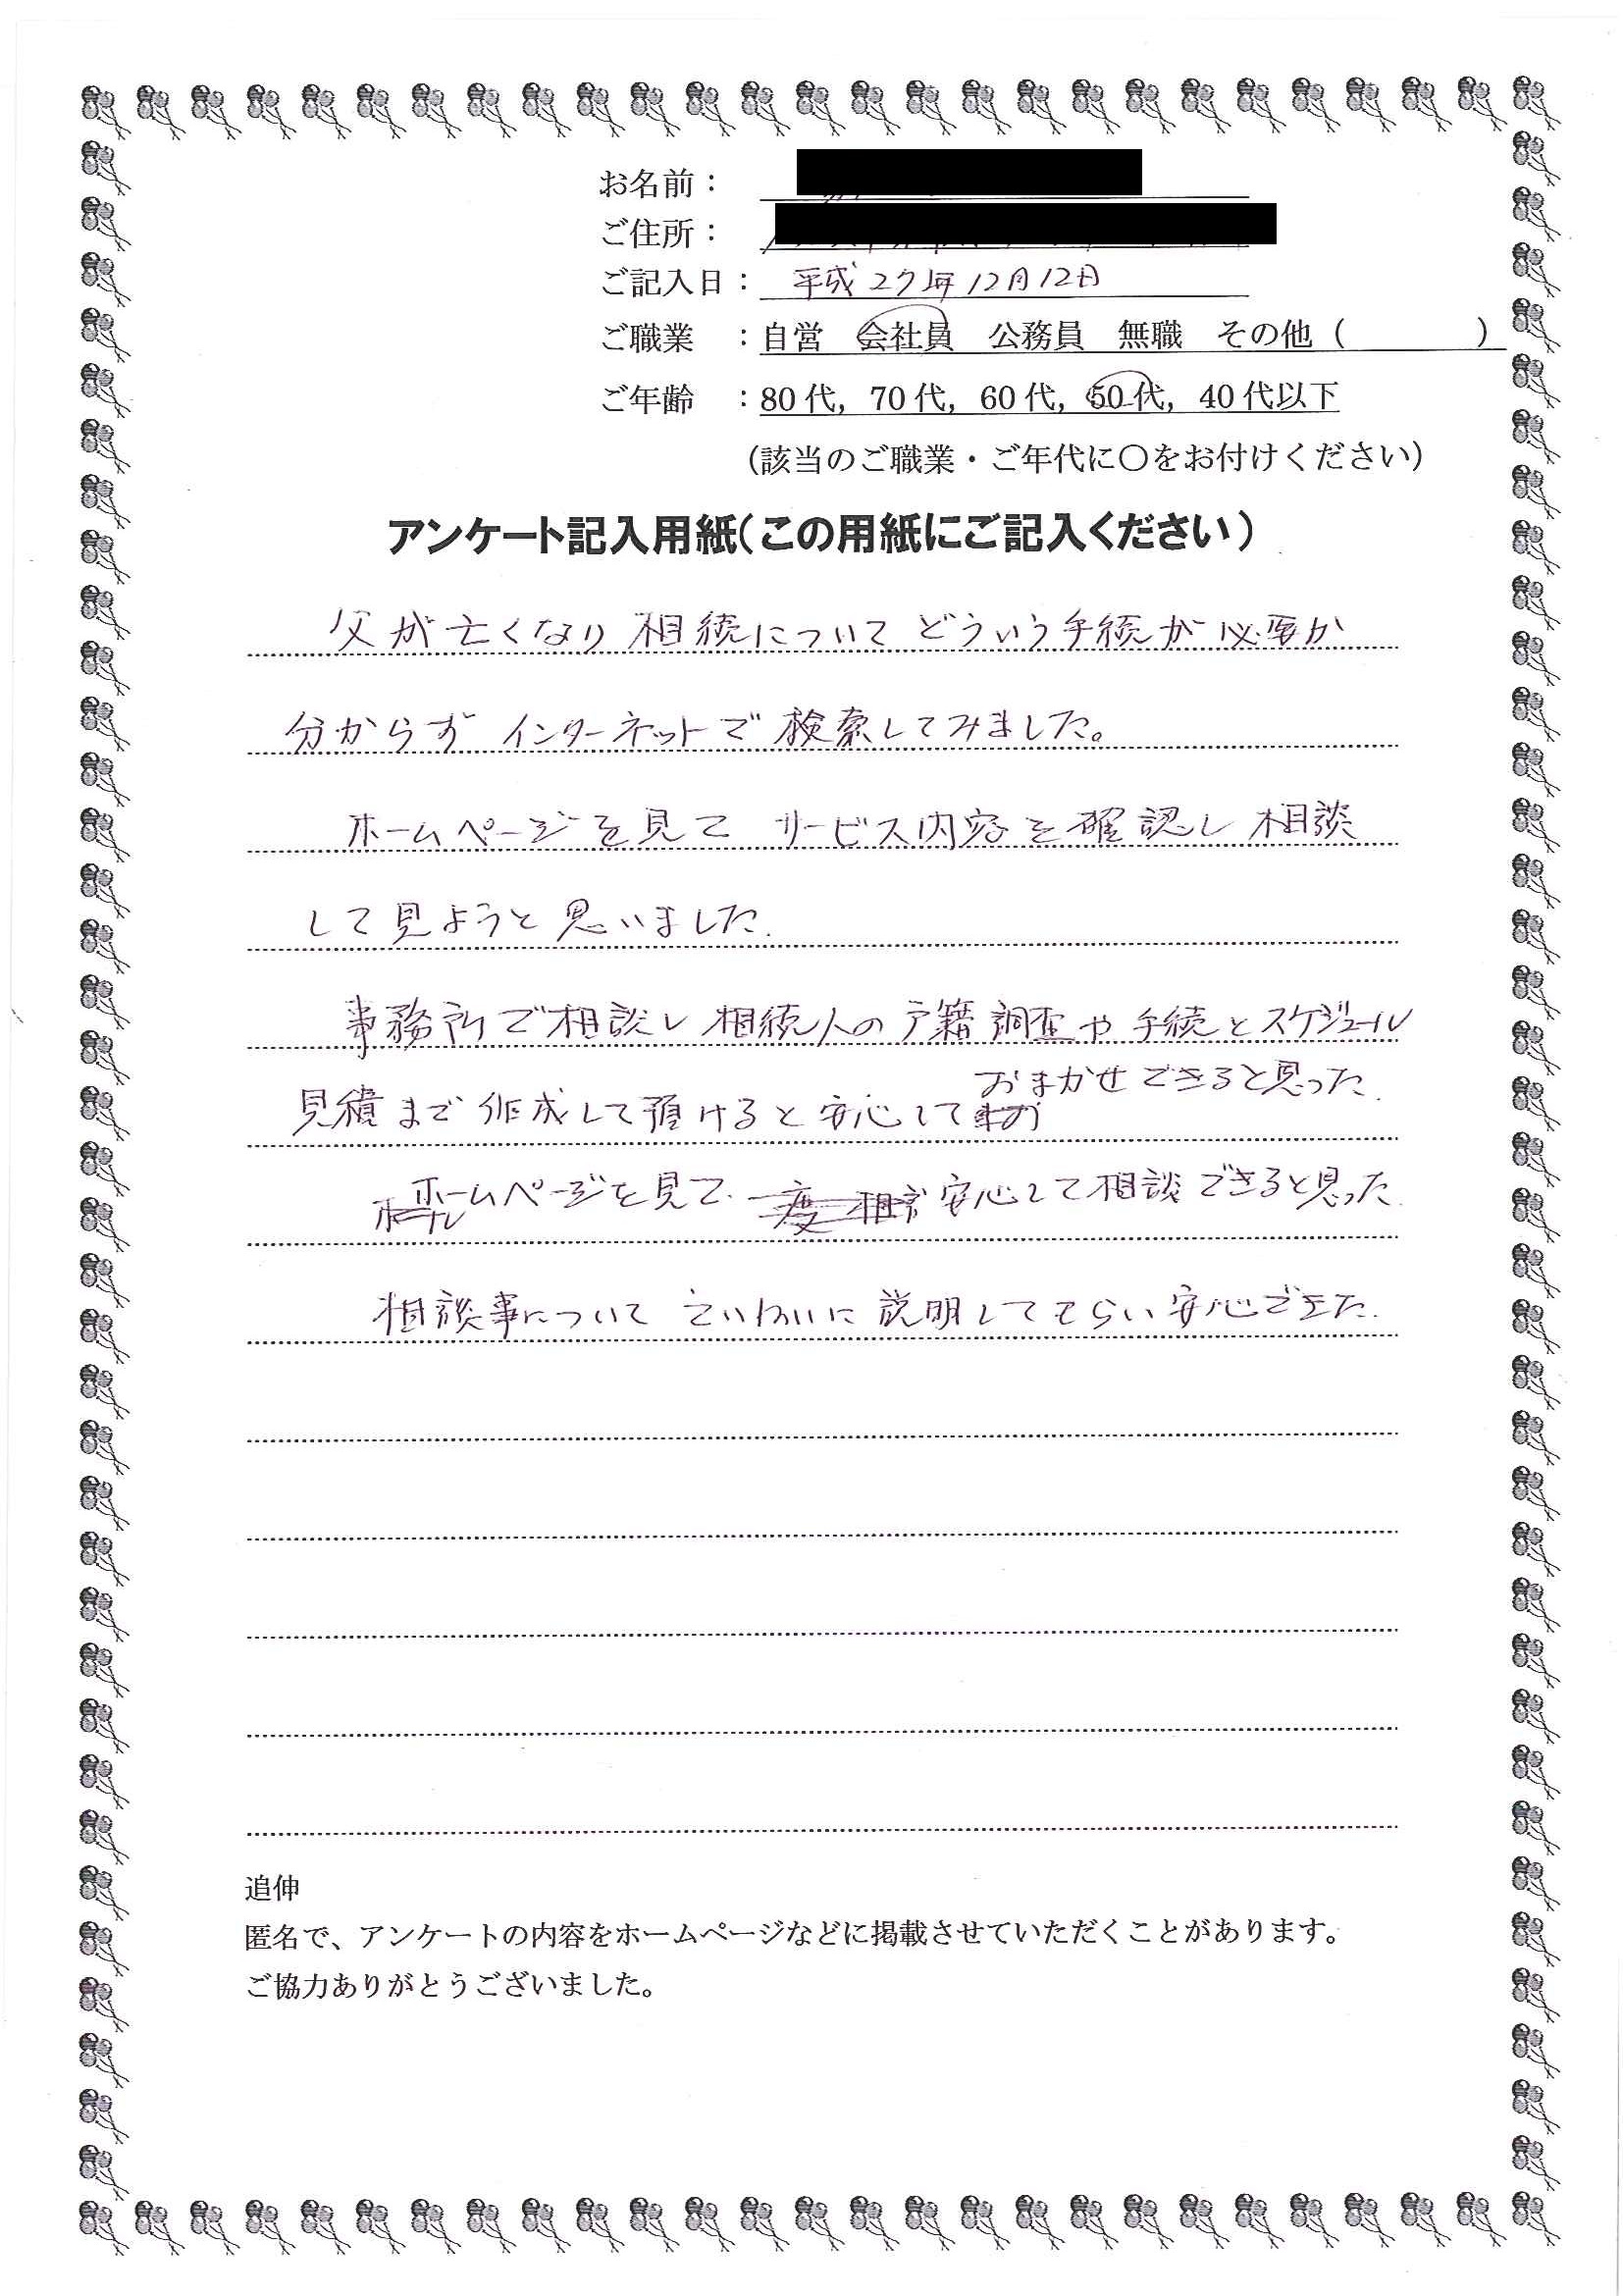 お名前：
ご住所：
ご記入日： 平成27年12月12日
ご職業 ：自営 会社員 公務員 無職 その他（ ）
ご年齢 ：80代，70代，60代，50代，40代以下
（該当のご職業・ご年代に〇をお付けください）
アンケート記入用紙（この用紙にご記入ください）
父が亡くなり 相続について どういう手続が必要か
分からず インターネットで 検索してみました。
ホームページを見て サービス内容を確認し 相談
して見ようと思いました.
事務所で相談し 相続人の戸籍調査や 手続とスケジュール
見積まで 作成して頂けると安心して おまかせできると思った.
ホームページを見て. 安心して相談できると思った.
相談事について ていねいに 説明してもらい 安心できた.
追伸
匿名で、アンケートの内容をホームページなどに掲載させていただくことがあります。
ご協力ありがとうございました。